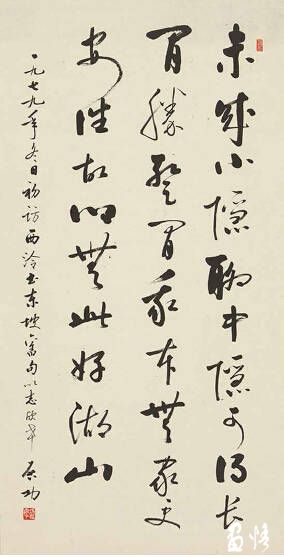 未成小隱聊中隱可得長
間勝暫間我本無家更
安往故鄉無此好湖山
一九七九年冬日初訪西泠書東坡舊句以志欣幸 启功